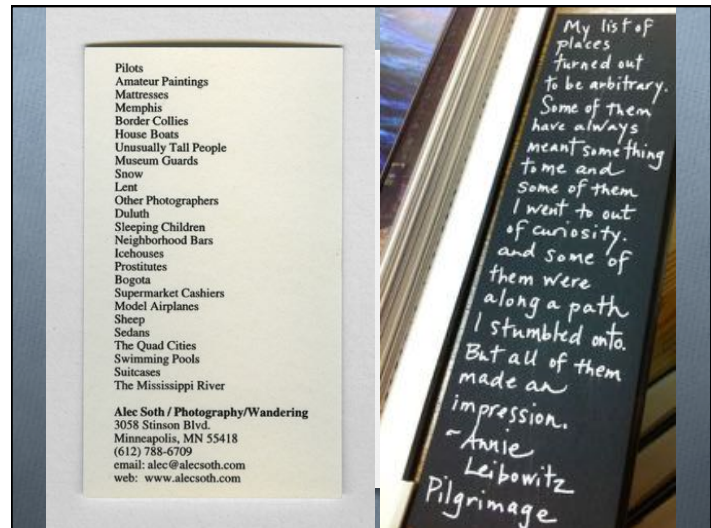 Pilots
Amateur Paintings
Mattresses
Memphis
Border Collies
House Boats
Unusually Tall People
Museum Guards
Snow
Lent
Other Photographers
Duluth
Sleeping Children
Neighborhood Bars
Icehouses
Prostitutes
Bogota
Supermarket Cashiers
Model Airplanes
Sheep
Sedans
The Quad Cities
Swimming Pools
Suitcases
The Mississippi River
Alec Soth / Photography/Wandering
3058 Stinson Blvd.
Minneapolis, MN 55418
(612) 788-6709
email: alec@alecsoth.com
web: www.alecsoth.com
My list of
places
turned out
to be arbitrary.
Some of them
have always
meant something
to me and
some of them
I went to out
of curiosity.
and some of
them were
along a path
I stumbled onto.
But all of them
made an
impression.
- Annie
Leibowitz
Pilgrimage